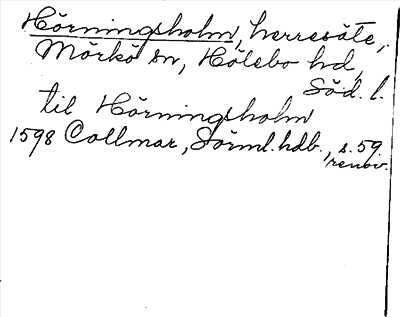 Hörningsholm, herresäte,
Mörkö sn, Hölebo hd,
Söd. l.
til Hörningsholm
1598 Collmar, Sörml. hdb., s. 59
renov.